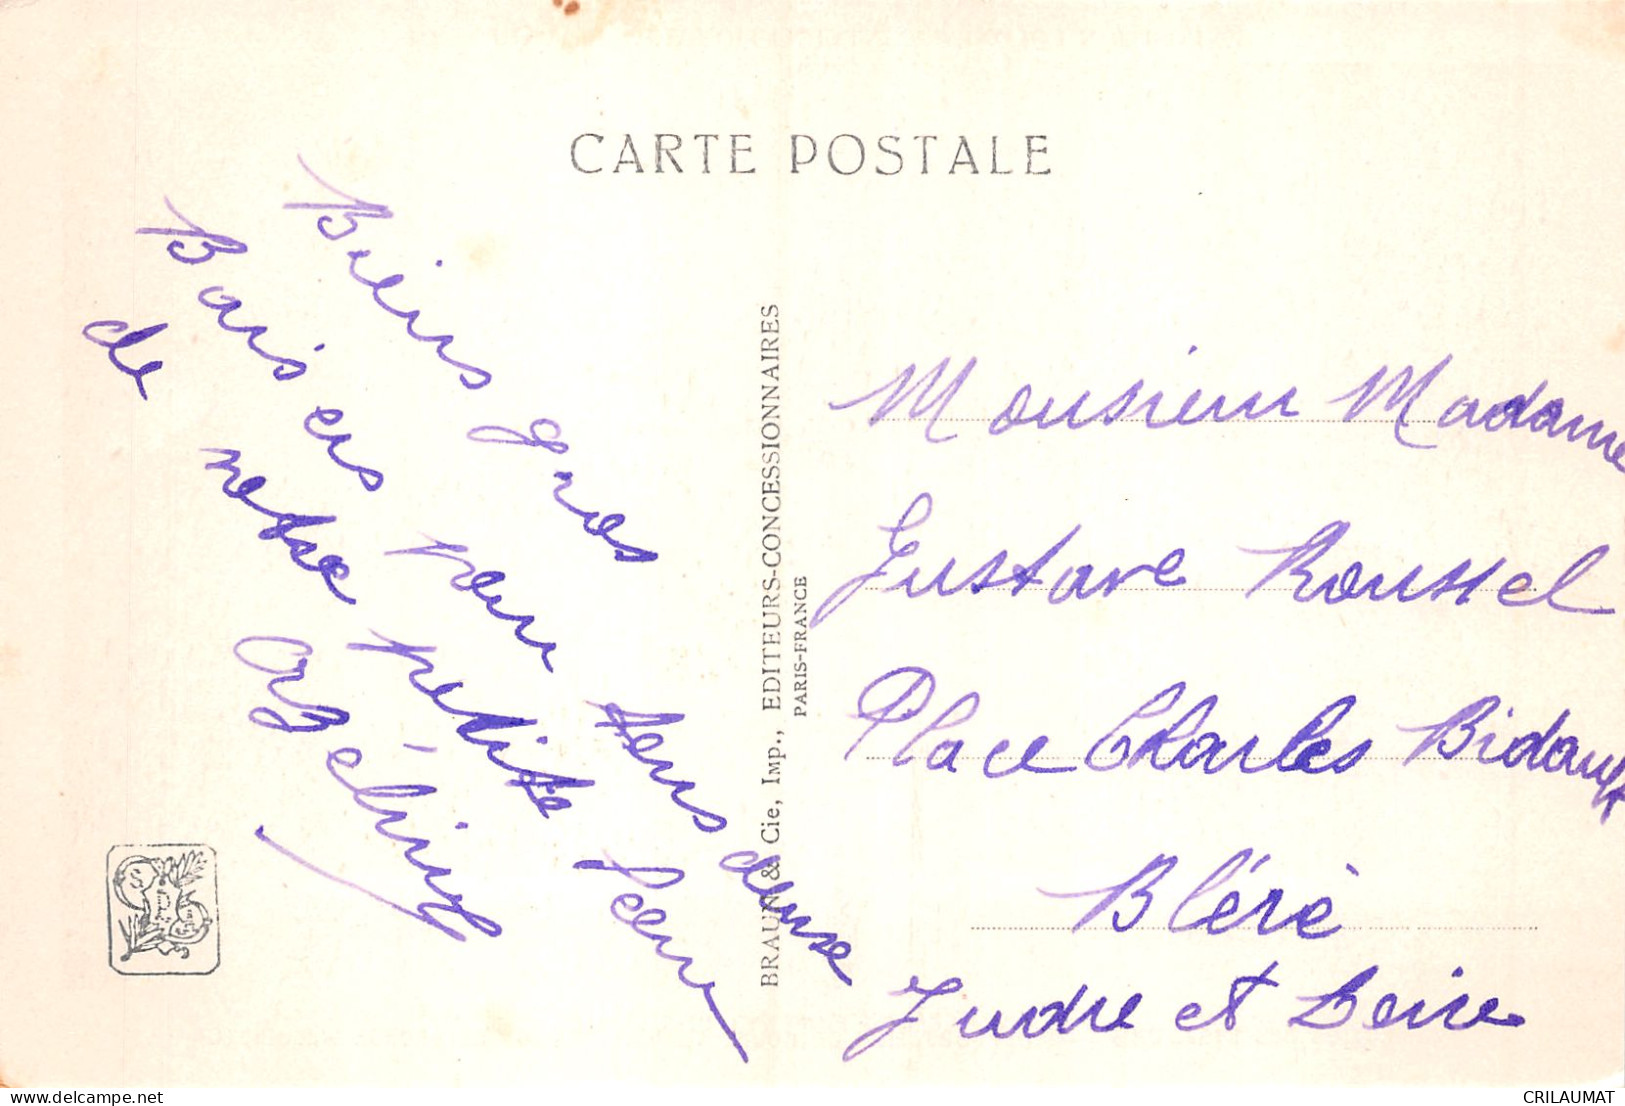 CARTE POSTALE
Biens gros
Bais ers pour tous deuse
de notre petite fleur
BRAUN & Cie, Imp., EDITEURS-CONCESSIONNAIRES
PARIS-FRANCE
Monsieur Madame
Gustave Roussel
Place Charles Bidault
Bléré
Indre et Loire
CRILAUMAT